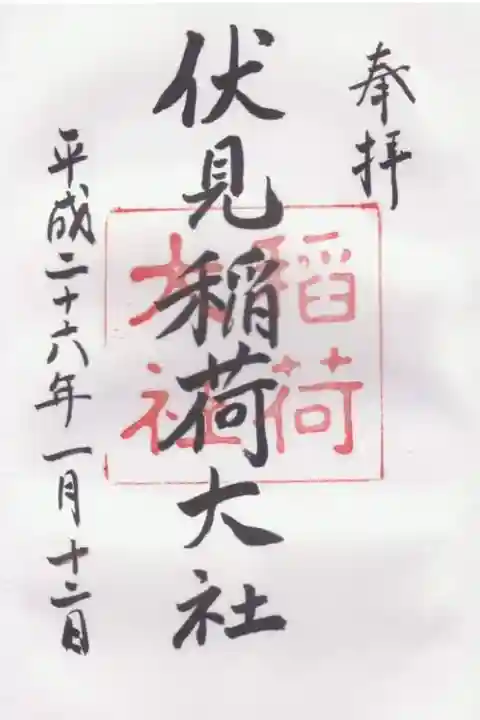 奉拝
伏見稲荷大社
稲荷
大社
平成二十六年一月十二日